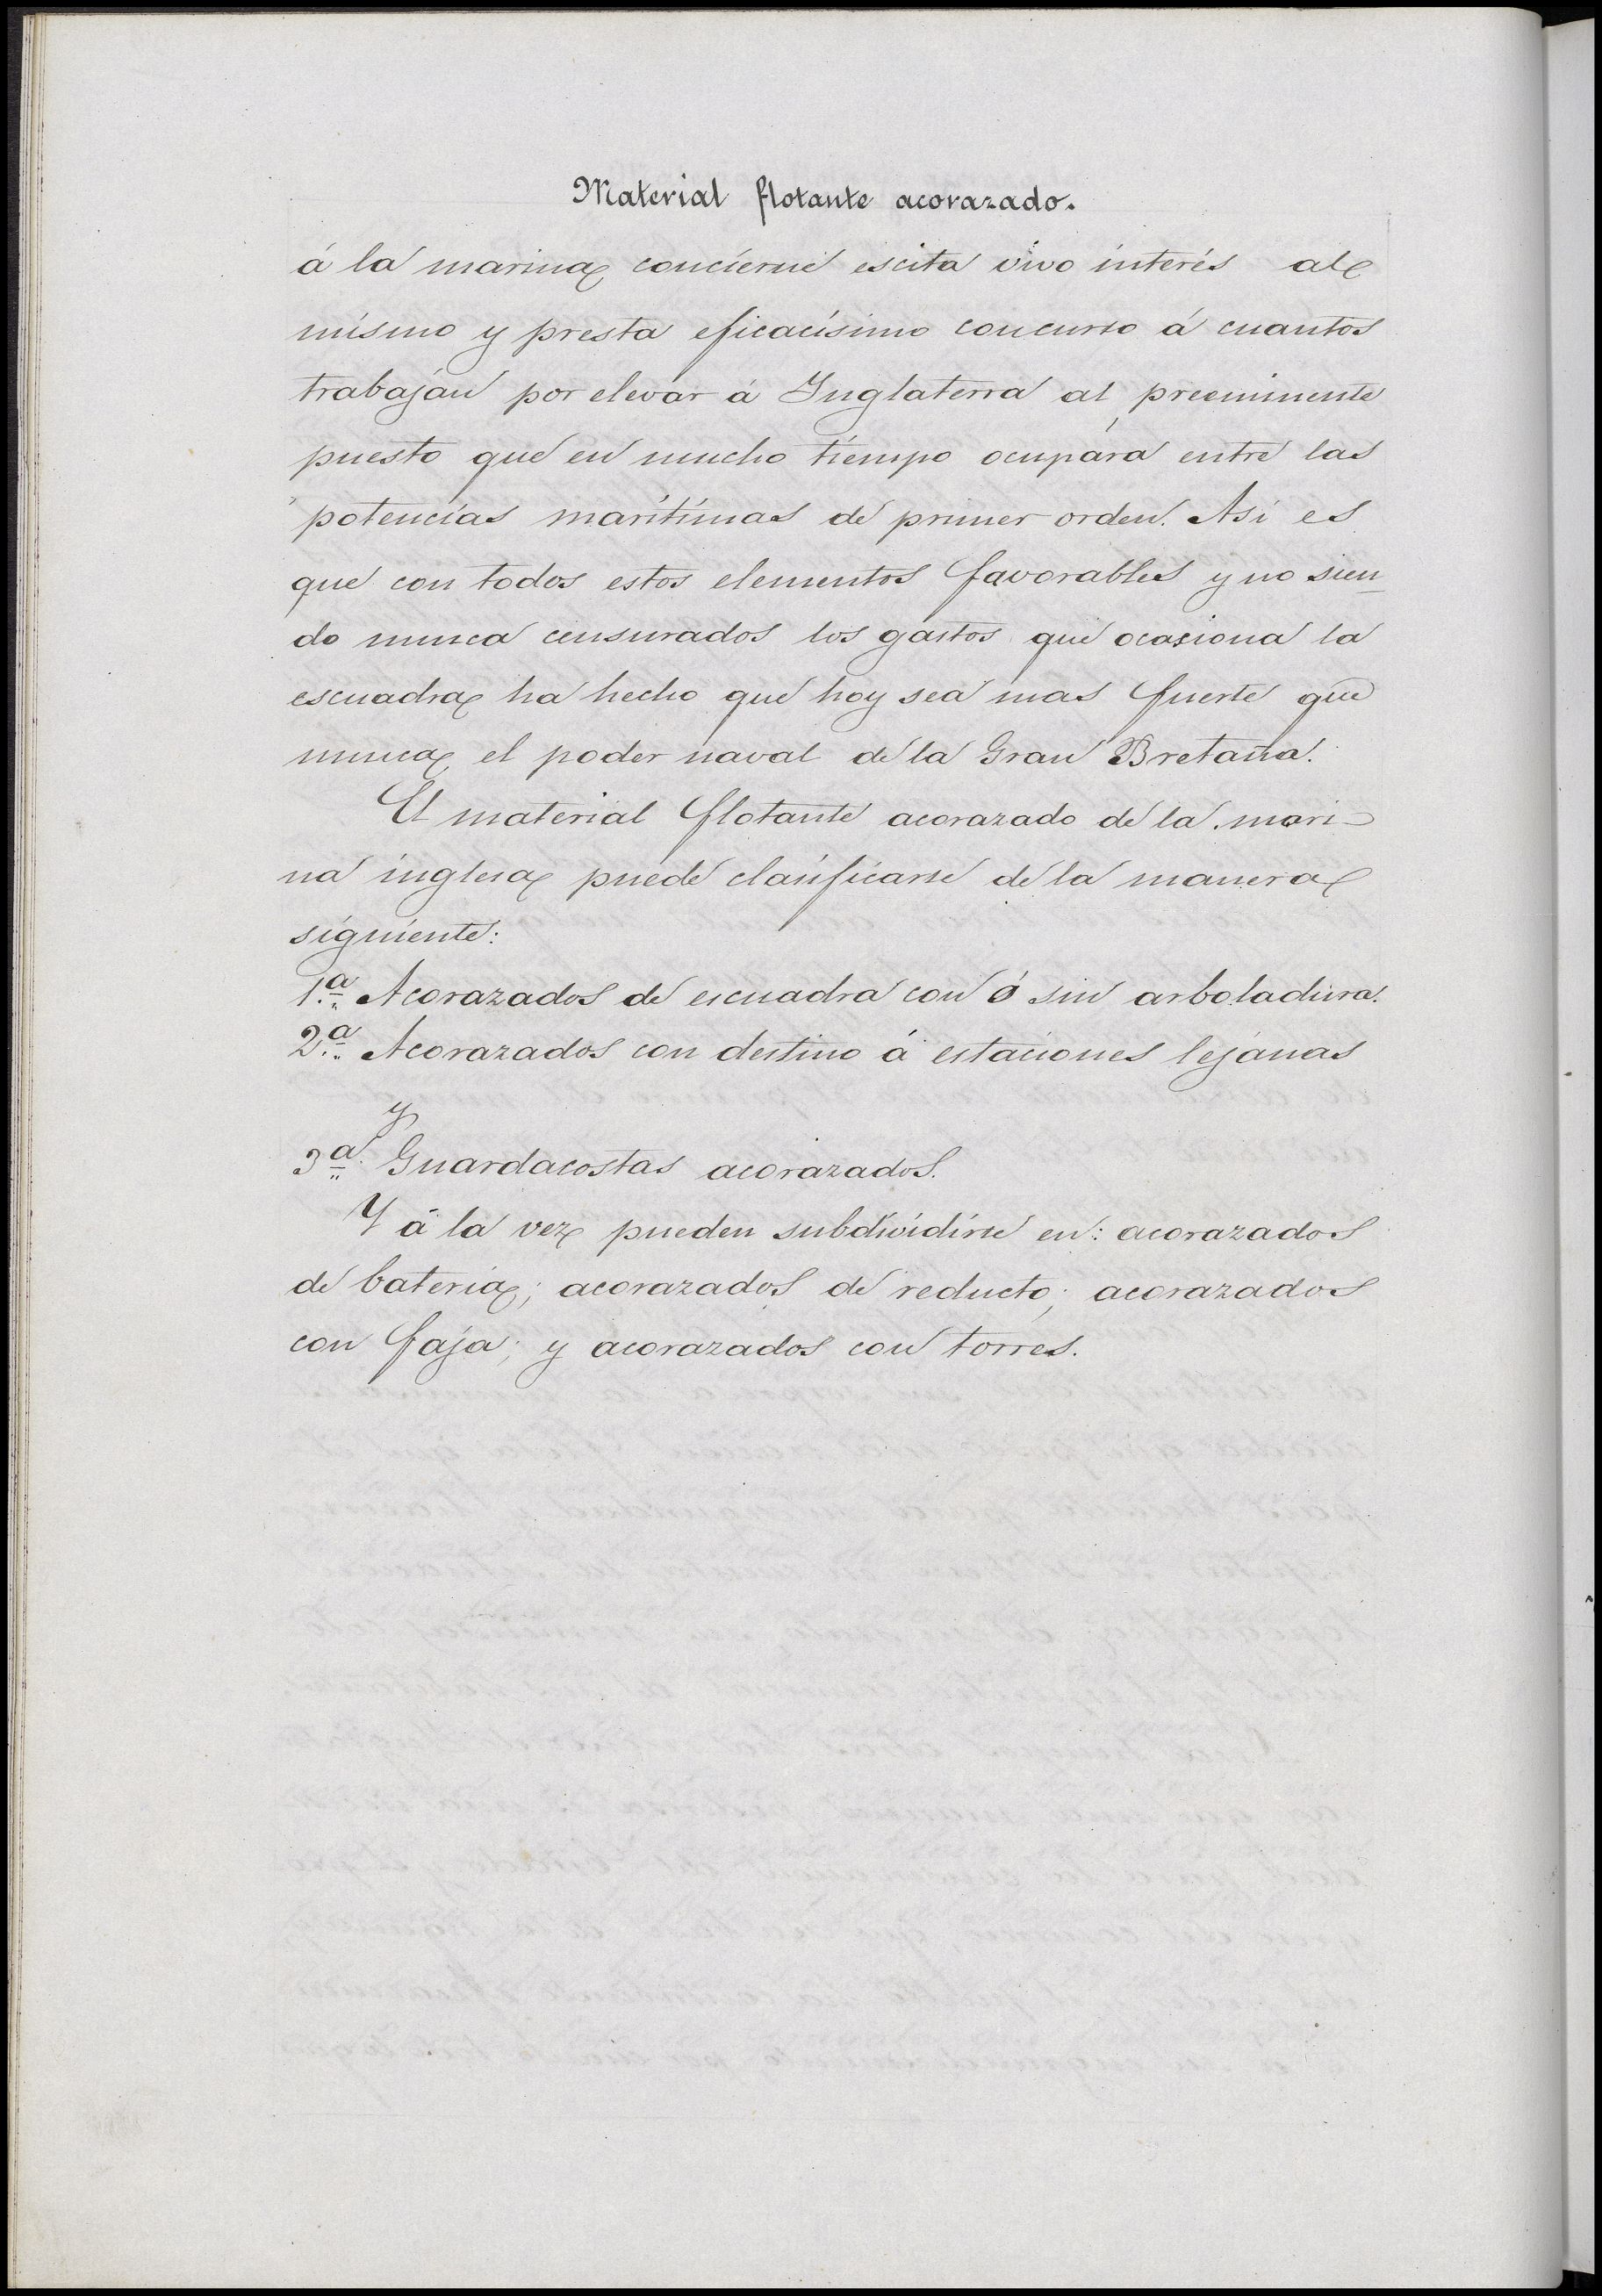 Material flotante acorazado.
á la marina concierne escita vivo interés al
mismo y presta eficacísimo concurso á cuantos
trabajan por elevar á Inglaterra al preeminente
puesto que en mucho tiempo ocupára entre las
potencias marítimas de primer orden. Asi es
que con todos estos elementos favorables y no sien-
do nunca censurados los gastos que ocasiona la
escuadra ha hecho que hoy sea mas fuerte que
nunca el poder naval de la Gran Bretaña.
El material flotante acorazado de la mari-
na inglesa puede clasificarse de la manera
siguiente:
1.ª Acorazados de escuadra con ó sin arboladura.
2.ª Acorazados con destino á estaciones lejanas
y
3.ª Guardacostas acorazados.
Y á la vez pueden subdividirse en: acorazados
de bateria; acorazados de reducto; acorazados
con faja; y acorazados con torres.